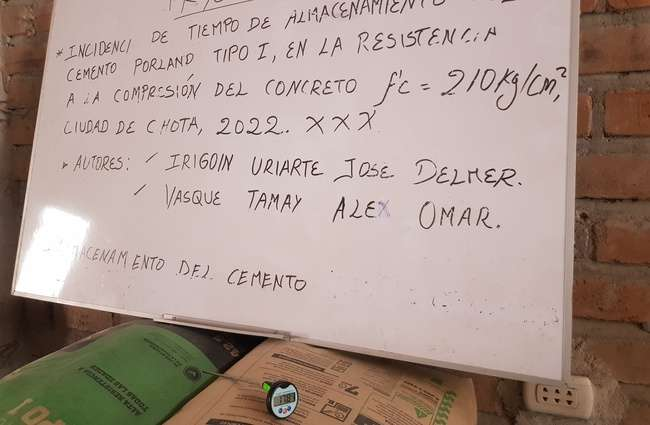 * INCIDENCI DE TIEMPO DE ALMACENAMIENTO
CEMENTO PORLAND TIPO I, EN LA RESISTENCIA
A LA COMPRESIÓN DEL CONCRETO f'c = 210 Kg/cm²,
CIUDAD DE CHOTA, 2022. XXX
▸ AUTORES: ✓ IRIGOIN URIARTE JOSE DELMER.
✓ VASQUE TAMAY ALEX OMAR.
ACENAMIENTO DEL CEMENTO
ALTA RESISTENCIA A
TODAS LAS EDADES